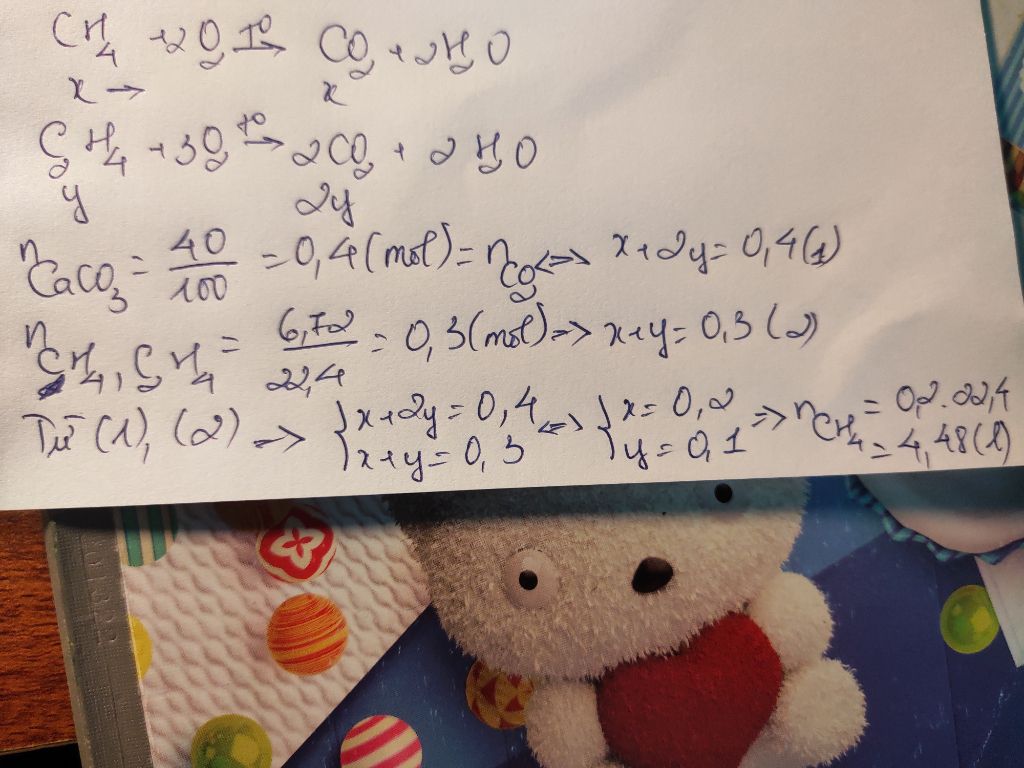 CH₄ + 2O₂ t⁰→ CO₂ + 2H₂O
x → x
C₂H₄ + 3O₂ t⁰→ 2CO₂ + 2H₂O
y 2y
nCaCO₃ = 40/100 = 0,4 (mol) = nCO₂ <=> x + 2y = 0,4 (1)
nCH₄, C₂H₄ = 6,72/22,4 = 0,3 (mol) => x + y = 0,3 (2)
Từ (1), (2) => { x + 2y = 0,4 <=> { x = 0,2 => nCH₄ = 0,2.22,4
x + y = 0,3 y = 0,1 = 4,48 (l)